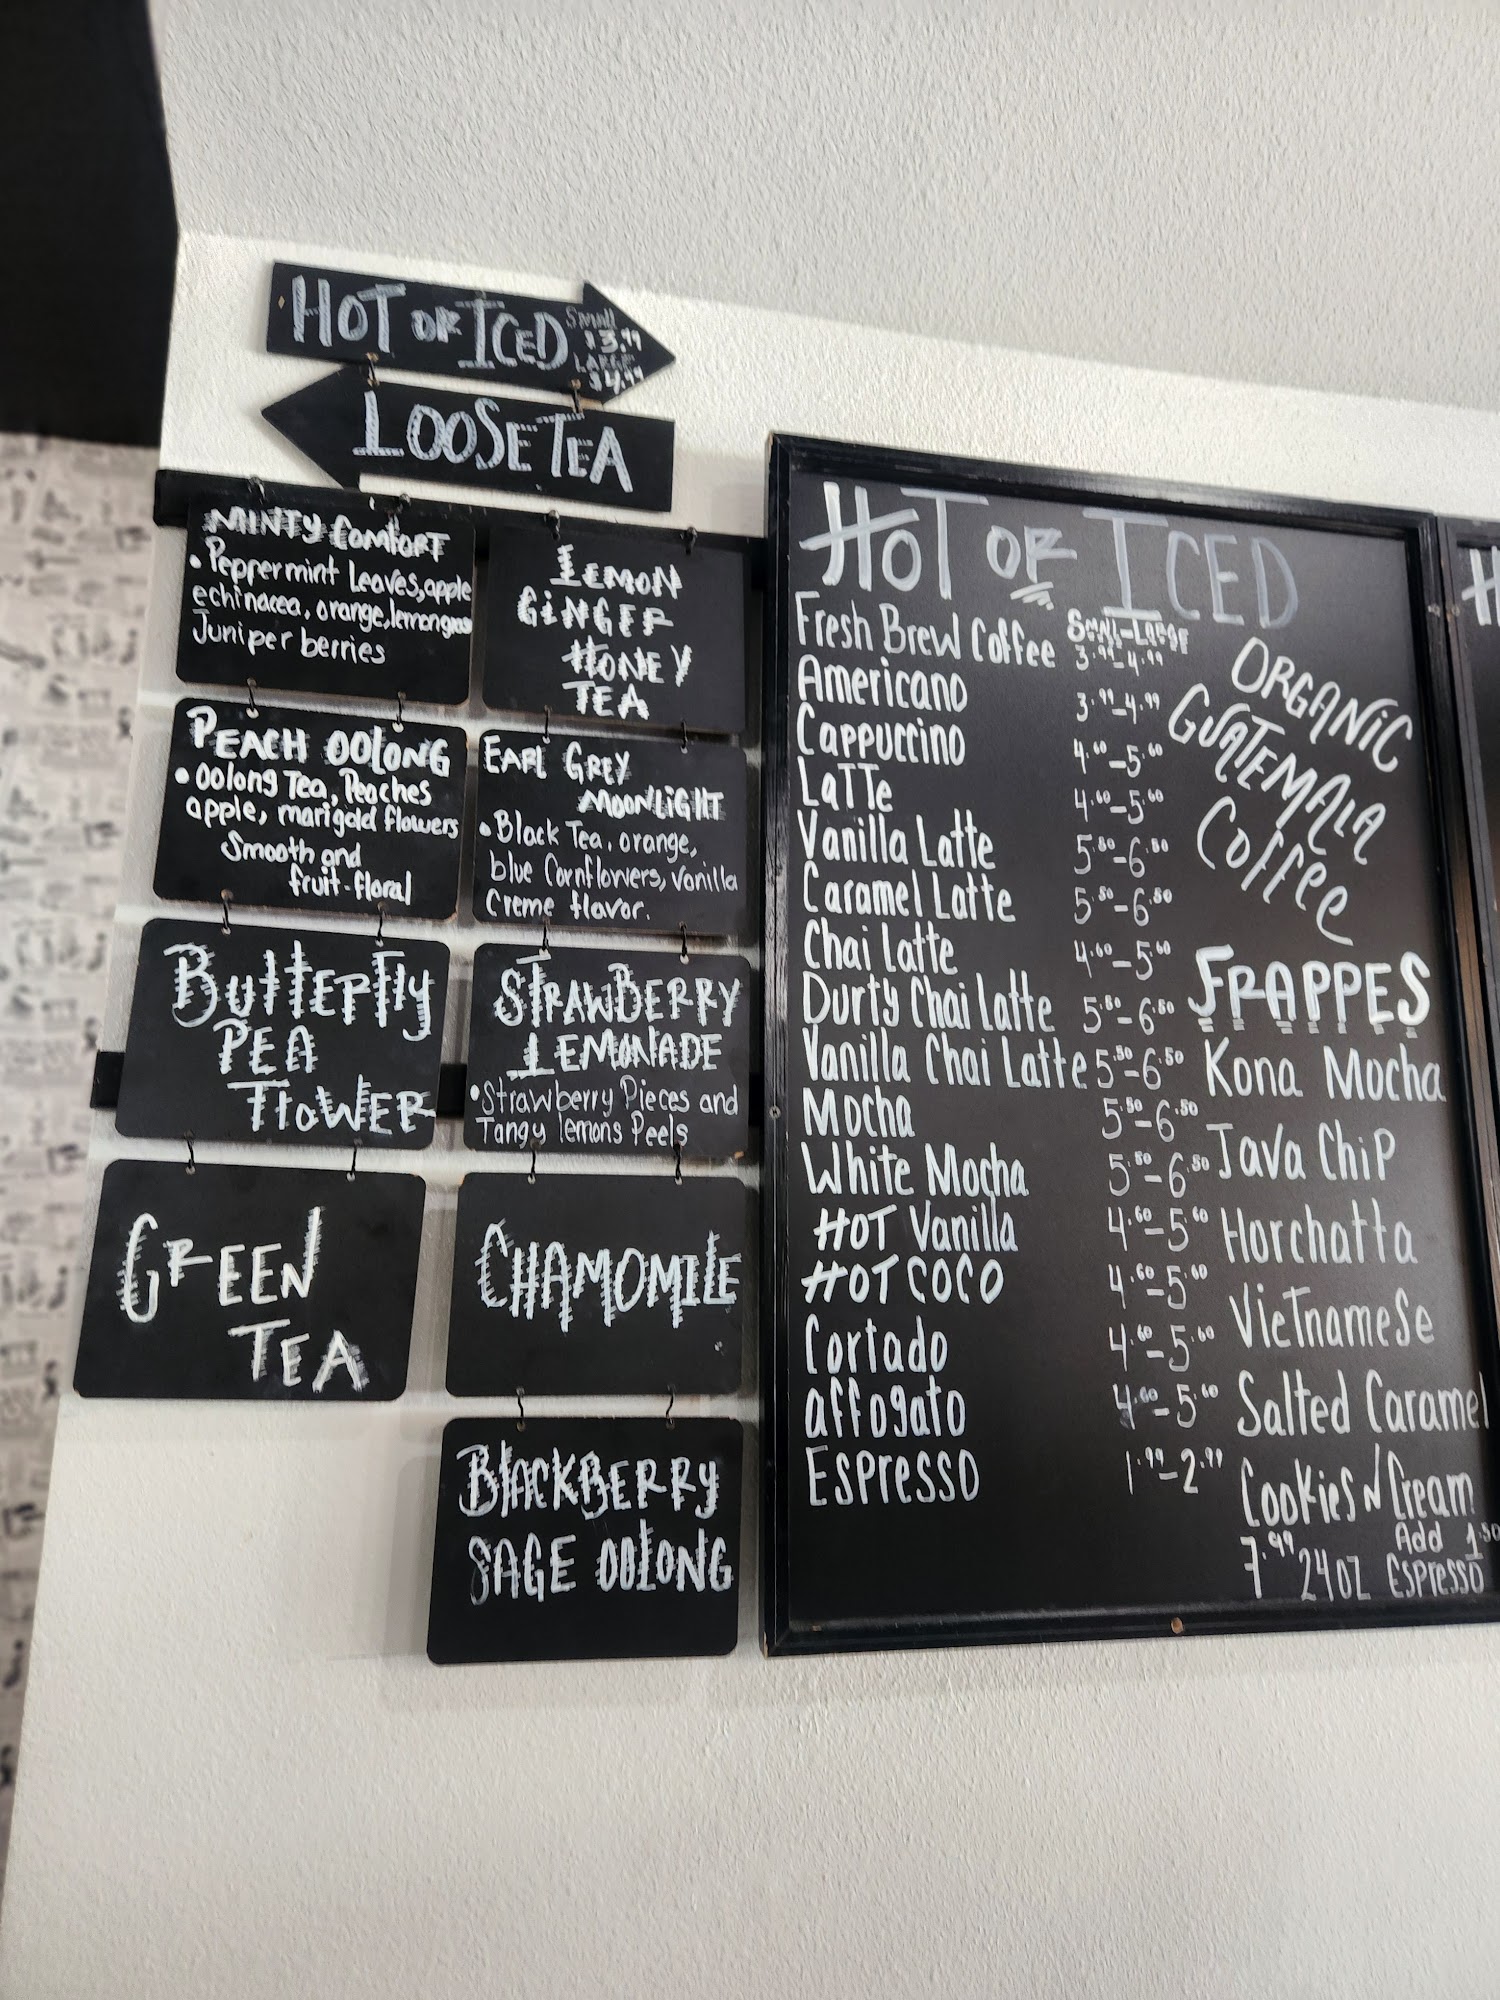 HOT OR ICED
Small
$3.99
LARGE
$4.99
LOOSE TEA
MINTY COMFORT
• Peppermint Leaves, apple
echinacea, orange, lemongrass
Juniper berries
LEMON
GINGER
HONEY
TEA
PEACH OOLONG
• Oolong Tea, Peaches
apple, marigold flowers
Smooth and
fruit-floral
EARL GREY
MOONLIGHT
• Black Tea, orange,
blue Cornflowers, Vanilla
Creme flavor.
BUTTERFLY
PEA
FLOWER
STRAWBERRY
LEMONADE
• Strawberry Pieces and
Tangy lemons Peels
GREEN
TEA
CHAMOMILE
BLACKBERRY
SAGE OOLONG
HOT OR ICED
SMALL-LARGE
Fresh Brew Coffee 3.99-4.99
Americano 3.99-4.99
Cappuccino 4.60-5.60
LaTTe 4.60-5.60
Vanilla Latte 5.50-6.50
Caramel Latte 5.50-6.50
Chai Latte 4.60-5.60
Durty Chai Latte 5.50-6.50
Vanilla Chai Latte 5.50-6.50
Mocha 5.50-6.50
White Mocha 5.50-6.50
HOT Vanilla 4.60-5.60
HOT COCO 4.60-5.60
Cortado 4.60-5.60
affogato 4.60-5.60
Espresso 1.99-2.99
ORGANIC
GUATEMALA
Coffee
FRAPPES
Kona Mocha
Java Chip
Horchatta
Vietnamese
Salted Caramel
Cookies N Cream
7.99 24oz
Add 1.50
Espresso
H